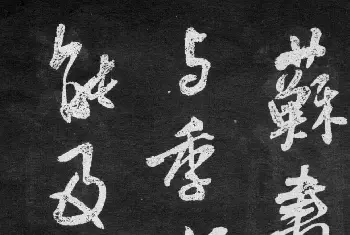 蘇書
与季
能及